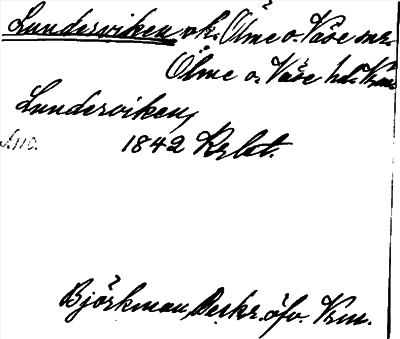 Lundsviken vk. Ölme o. Väse snr.
Ölme o. Väse hd. Vrm.
Lundsviken,
1842 Krbt.
Björkman, Beskr. öfv. Vrm.